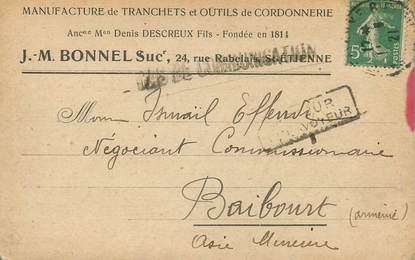 MANUFACTURE de TRANCHETS et OUTILS de CORDONNERIE
Ancne Mon Denis DESCREUX Fils - Fondée en 1814
J.-M. BONNEL Sucr, 24, rue Rabelais, St-ÉTIENNE
DE COMMUNICATION
5c
Monsr Ismail Effendi
Négociant Commissionnaire
Baibourt (arménie)
Asie Mineure